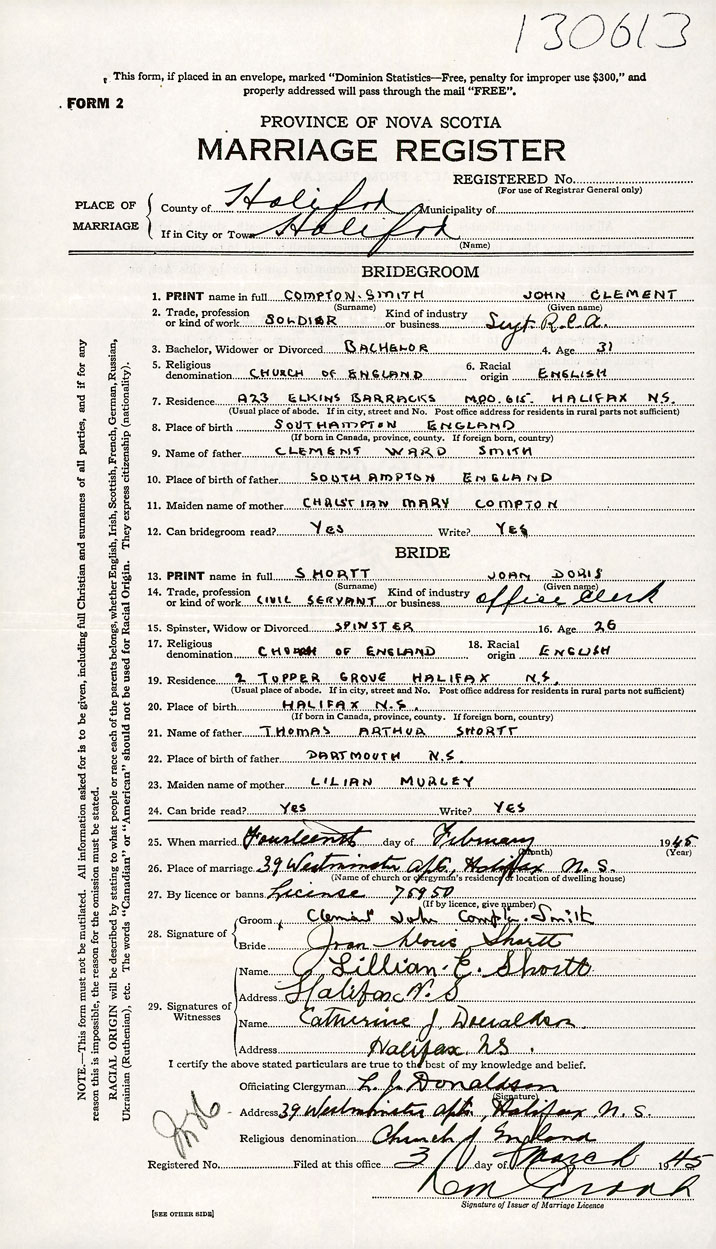 130613
This form, if placed in an envelope, marked "Dominion Statistics—Free, penalty for improper use $300," and
properly addressed will pass through the mail "FREE".
FORM 2
PROVINCE OF NOVA SCOTIA
MARRIAGE REGISTER
REGISTERED No.
(For use of Registrar General only)
PLACE OF MARRIAGE
County of Halifax Municipality of
If in City or Town Halifax
(Name)
BRIDEGROOM
1. PRINT name in full COMPTON-SMITH JOHN CLEMENT
(Surname) (Given name)
2. Trade, profession or kind of work SOLDIER Kind of industry or business Sergt R.C.A.
3. Bachelor, Widower or Divorced BACHELOR 4. Age 31
5. Religious denomination CHURCH OF ENGLAND 6. Racial origin ENGLISH
7. Residence A23 ELKINS BARRACKS MPO. 615. HALIFAX N.S.
(Usual place of abode. If in city, street and No. Post office address for residents in rural parts not sufficient)
8. Place of birth SOUTHAMPTON ENGLAND
(If born in Canada, province, county. If foreign born, country)
9. Name of father CLEMENT WARD SMITH
10. Place of birth of father SOUTHAMPTON ENGLAND
11. Maiden name of mother CHRISTIAN MARY COMPTON
12. Can bridegroom read? Yes Write? YES
BRIDE
13. PRINT name in full SHORTT JOAN DORIS
(Surname) (Given name)
14. Trade, profession or kind of work CIVIL SERVANT Kind of industry or business office clerk
15. Spinster, Widow or Divorced SPINSTER 16. Age 26
17. Religious denomination CHURCH OF ENGLAND 18. Racial origin ENGLISH
19. Residence 2 TUPPER GROVE HALIFAX N.S.
(Usual place of abode. If in city, street and No. Post office address for residents in rural parts not sufficient)
20. Place of birth HALIFAX N.S.
(If born in Canada, province, county. If foreign born, country)
21. Name of father THOMAS ARTHUR SHORTT
22. Place of birth of father DARTMOUTH N.S.
23. Maiden name of mother LILIAN MURLEY
24. Can bride read? Yes Write? YES
25. When married Fourteenth day of February 1945
(Month) (Year)
26. Place of marriage 39 Westminster Apts., Halifax N.S.
(Name of church or clergyman's residence or location of dwelling house)
27. By licence or banns License 75950
(If by licence, give number)
28. Signature of
Groom Clement John Compton-Smith
Bride Joan Doris Shortt
29. Signatures of Witnesses
Name Lillian E. Shortt
Address Halifax N.S
Name Catherine J. Donaldson
Address Halifax NS.
I certify the above stated particulars are true to the best of my knowledge and belief.
Officiating Clergyman L. J. Donaldson
(Signature)
Address 39 Westminster Apts. Halifax N.S.
Religious denomination Church of England
Registered No. Filed at this office 3 day of March 1945
Signature of Issuer of Marriage Licence
[SEE OTHER SIDE]
NOTE.—This form must not be mutilated. All information asked for is to be given, including full Christian and surnames of all parties, and if for any
reason this is impossible, the reason for the omission must be stated.
RACIAL ORIGIN will be described by stating to what people or race each of the parents belongs, whether English, Irish, Scottish, French, German, Russian,
Ukrainian (Ruthenian), etc. The words "Canadian" or "American" should not be used for Racial Origin. They express citizenship (nationality).